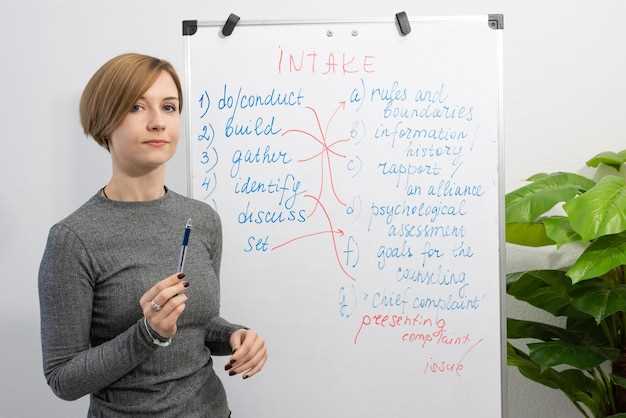 INTAKE
1) do/conduct
2) build
3) gather
4) identify
discuss
set
a) rules and
boundaries
b) information/
history
c) rapport/
an alliance
d) psychological
assessment
f) goals for the
counseling
g) "chief complaint"
presenting
complaint
issue